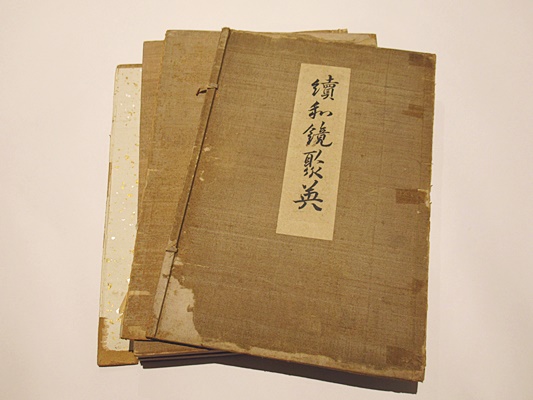 續和鏡聚英